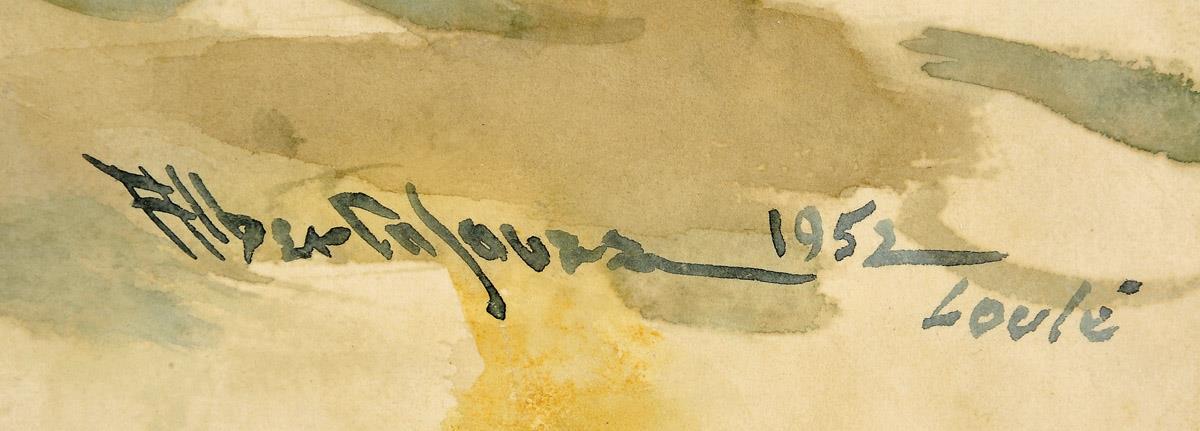 Alberto Souza 1952
Loulé